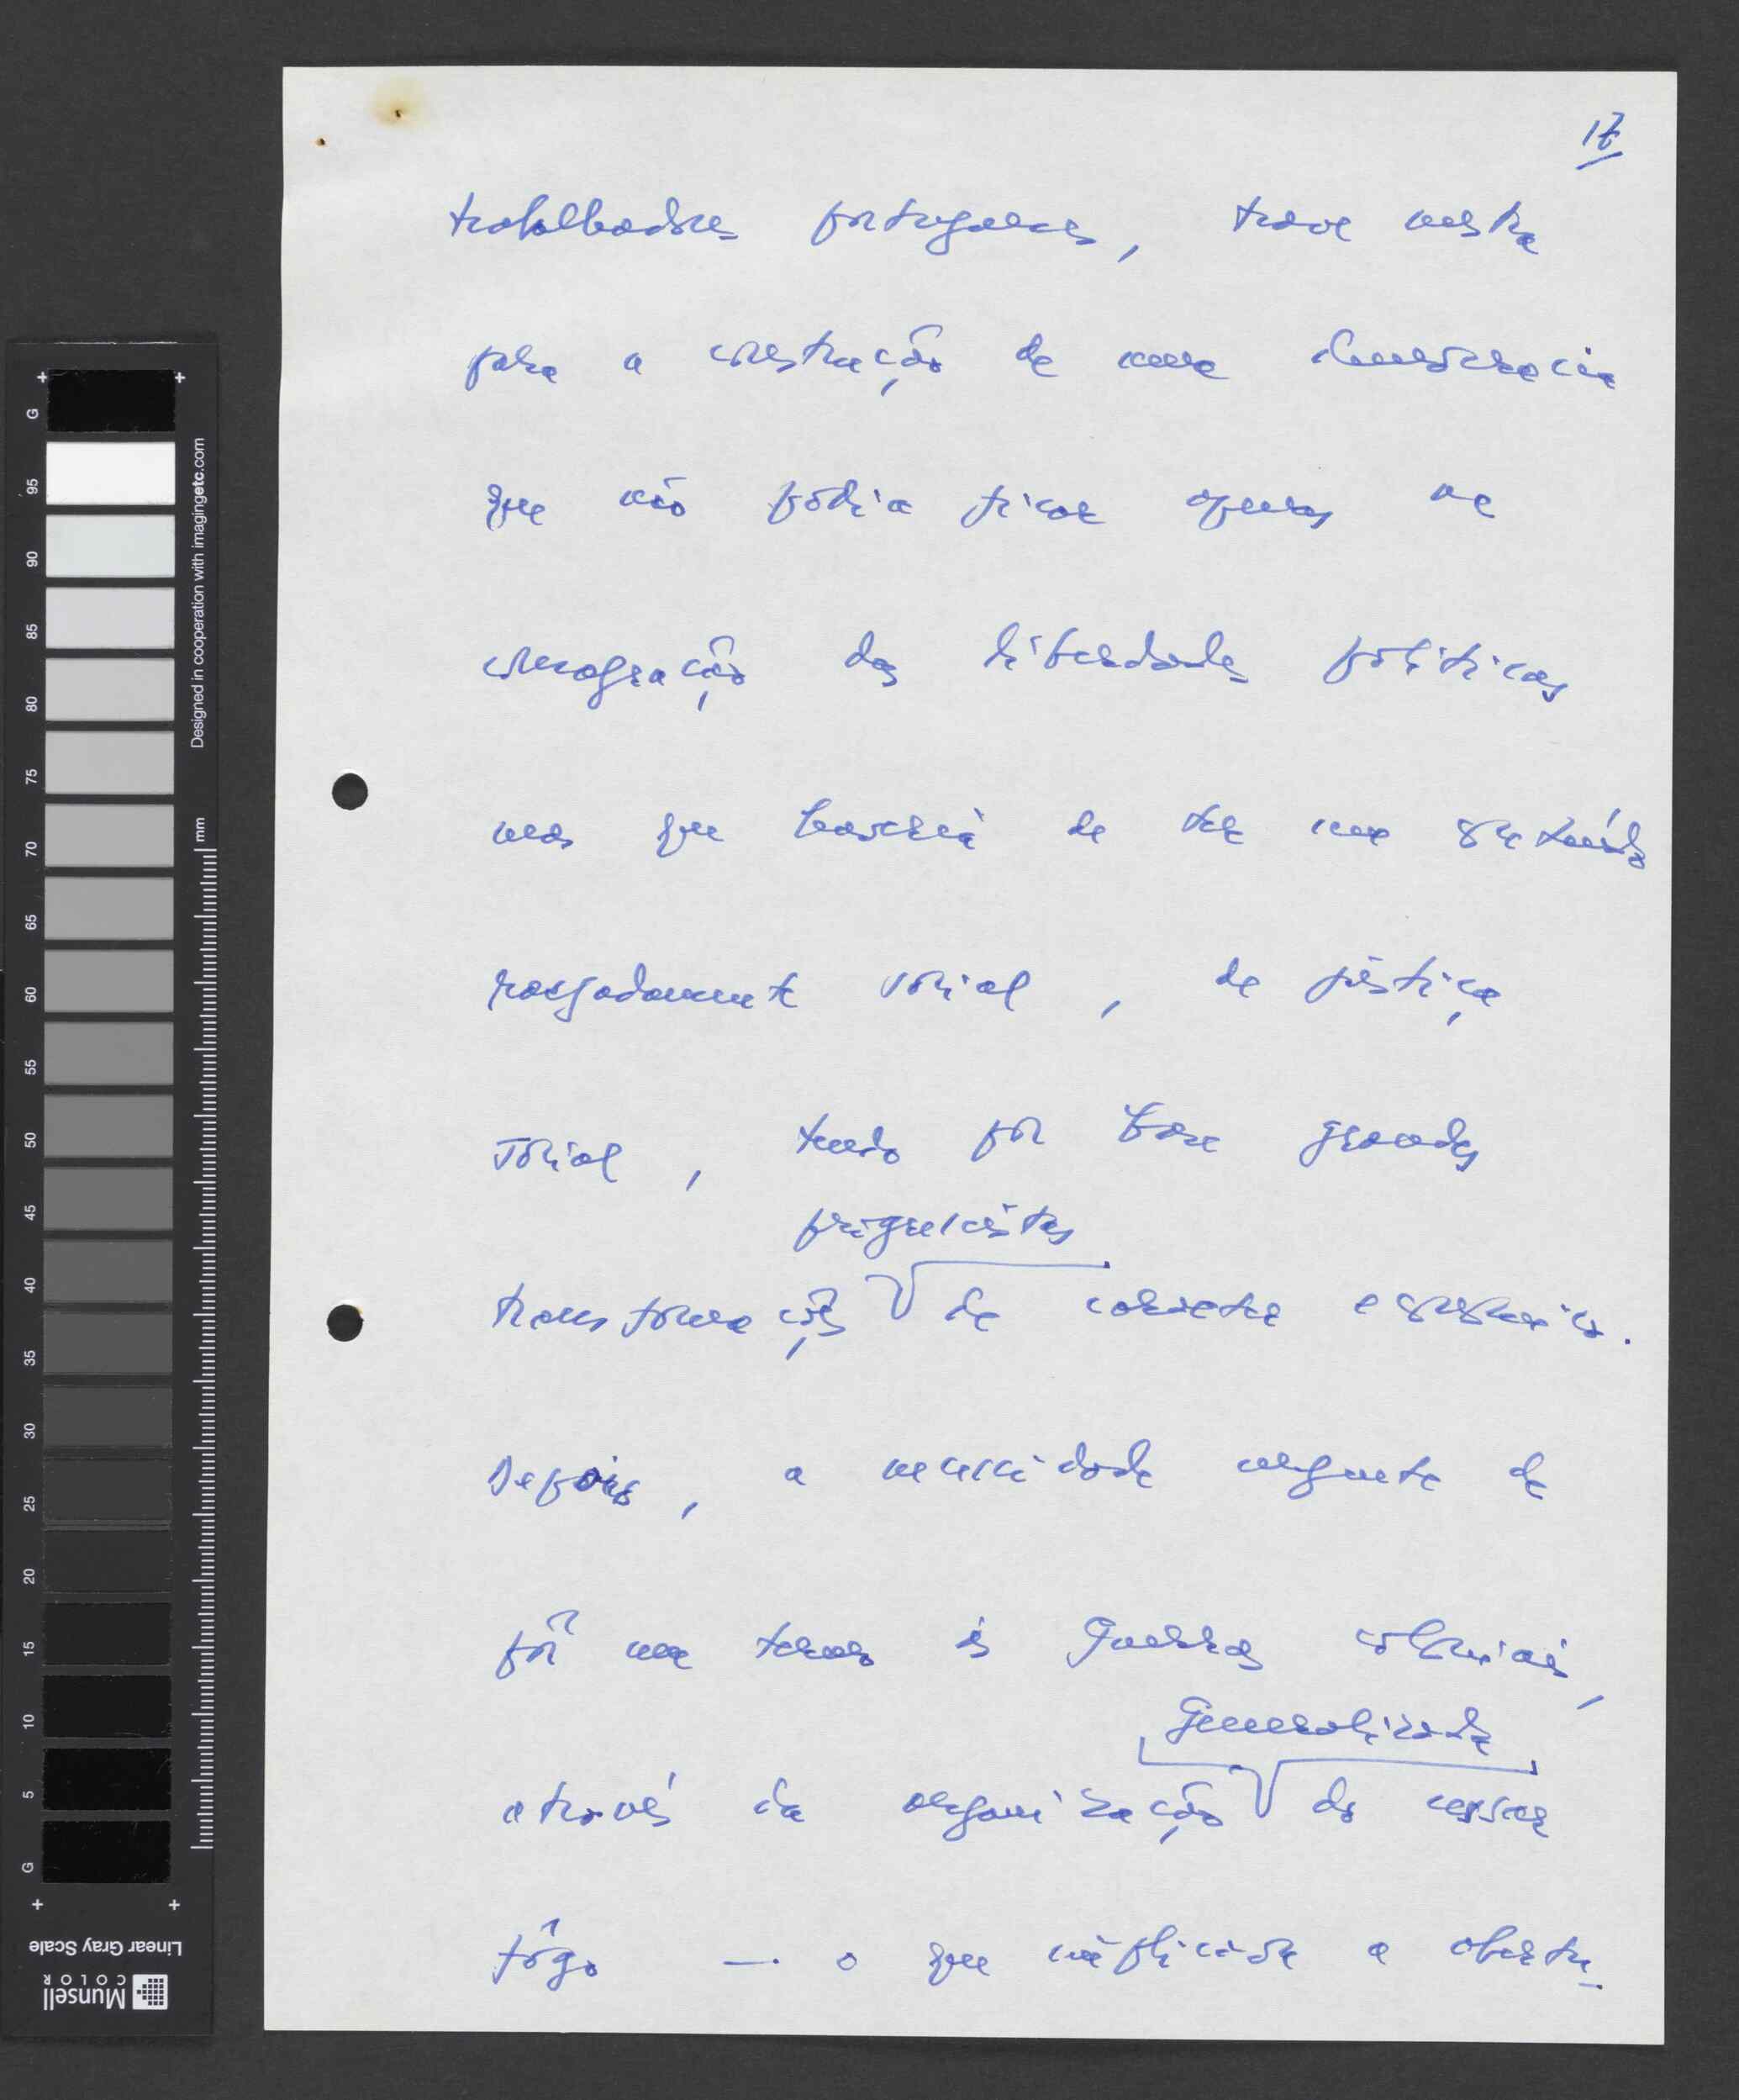 17
trabalhadores portugueses, trave mestra
para a construção de uma democracia
que não podia ficar apenas na
consagração das liberdades políticas
mas que haveria de ter um conteúdo
rasgadamente social, de justiça
social, tendo por base grandes
progressistas
transformações de carácter económico.
Depois, a necessidade urgente de
pôr um termo às guerras coloniais,
generalizada
através da organização do cessar
fôgo — o que implicava a abertu-
G
95
90
85
80
75
70
65
60
55
50
45
40
35
30
25
20
15
10
5
G
mm
Designed in cooperation with imagingetc.com
Linear Gray Scale
Munsell
COLOR